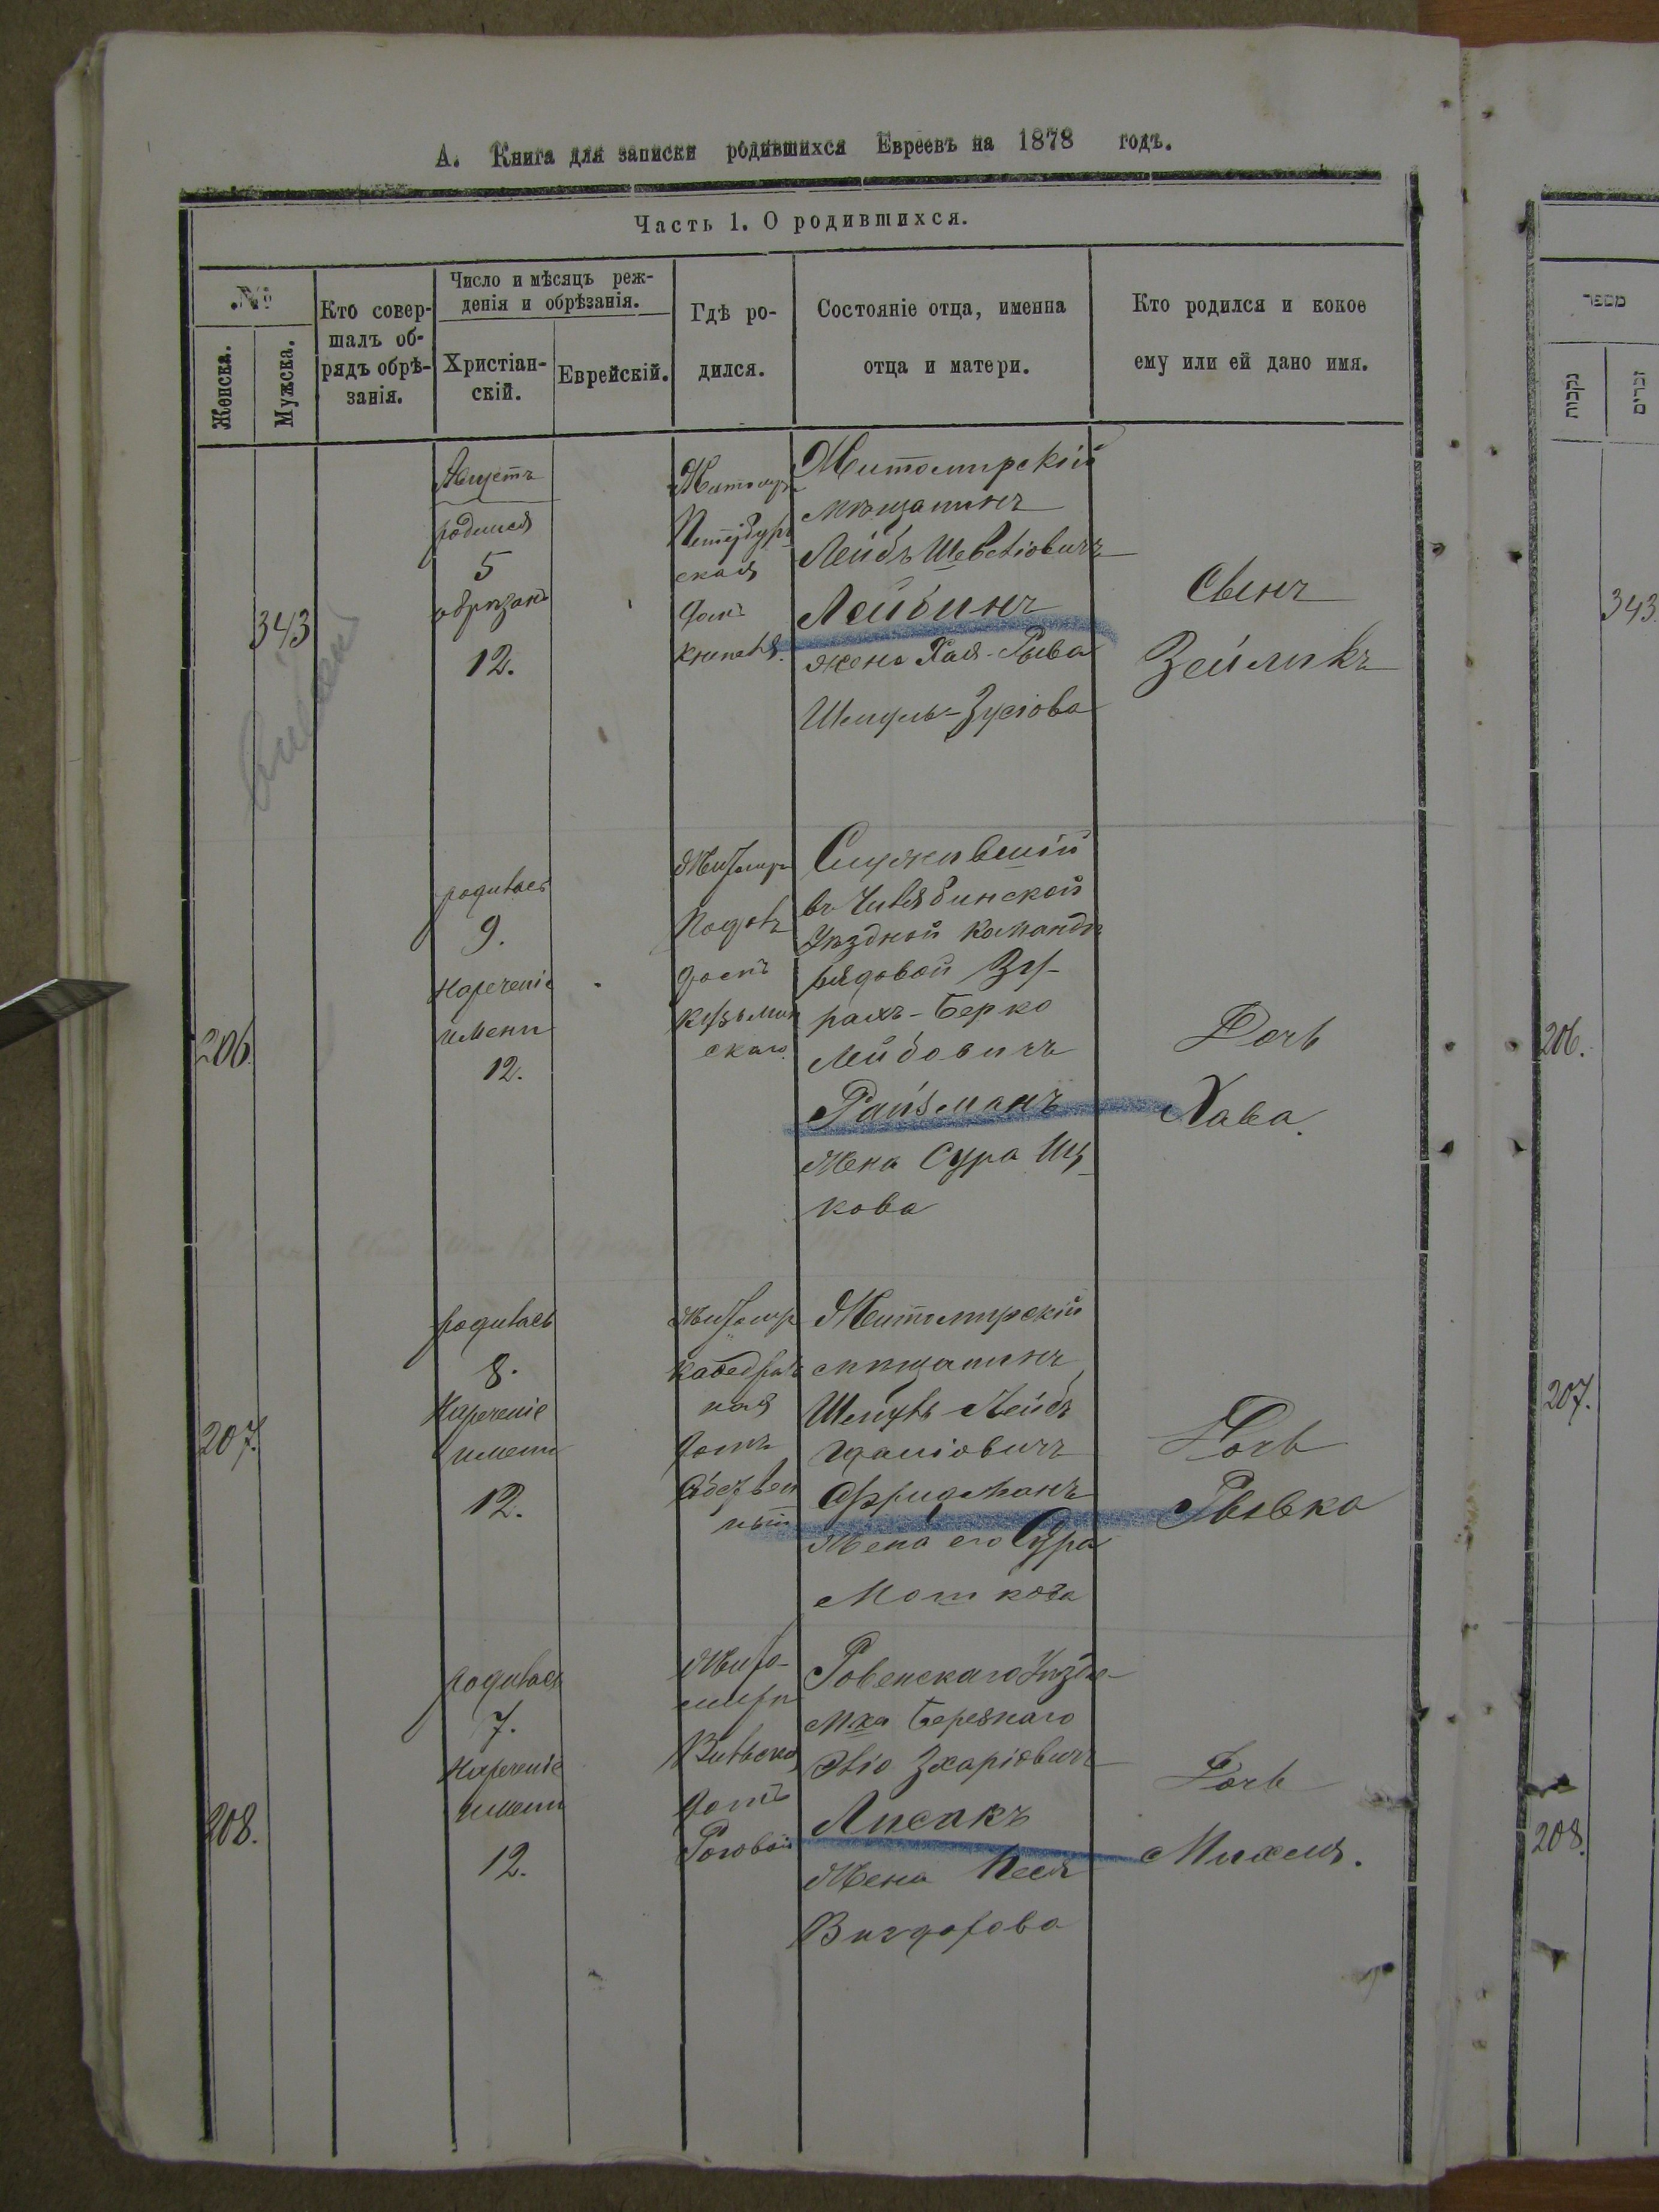 А. Книга для записки родившихся Евреевъ на 1878 годъ.
Часть 1. О родившихся.
№
Женска.
Мужска.
Кто совер-
шалъ об-
рядъ обрѣ-
занія.
Число и мѣсяцъ реж-
денія и обрѣзанія.
Христіан-
скій.
Еврейскій.
Гдѣ ро-
дился.
Состояніе отца, именна
отца и матери.
Кто родился и кокое
ему или ей дано имя.
343
Августъ
родился
5
обрѣзанъ
12.
Житомиръ
ская
домъ
Житомирскій
мѣщанинъ
Лейбъ
Лейбинъ
жена Хая-Рыва
Шмуль-Зусіова
Сынъ
Зейликъ
206.
родилась
9.
Нареченіе
имени
12.
Житомиръ
домъ
Кузьмин
скаго
Служившій
въ Челябинской
Уѣздной Командѣ
рядовой Зу-
рахъ-Берко
Лейбовичъ
Райзманъ
Жена Сура Иц-
кова
Дочь
Хава.
207.
родилась
8.
Нареченіе
имени
12.
Житомир
Кафедраль
ная
домъ
Житомирскій
мѣщанинъ
Шмуль Лейбъ
Фридманъ
Жена его Сура
Мошкова
Дочь
Рывка
208.
родилась
7.
Нареченіе
имени
12.
Жито-
миръ
Вильская
домъ
Роговой
Ровенскаго Уѣзда
М-ка Березнаго
Лисакъ
Жена Песя
Вигдорова
Дочь
Михля.
מספר
נקבות
זכרים
343.
206.
207.
208.